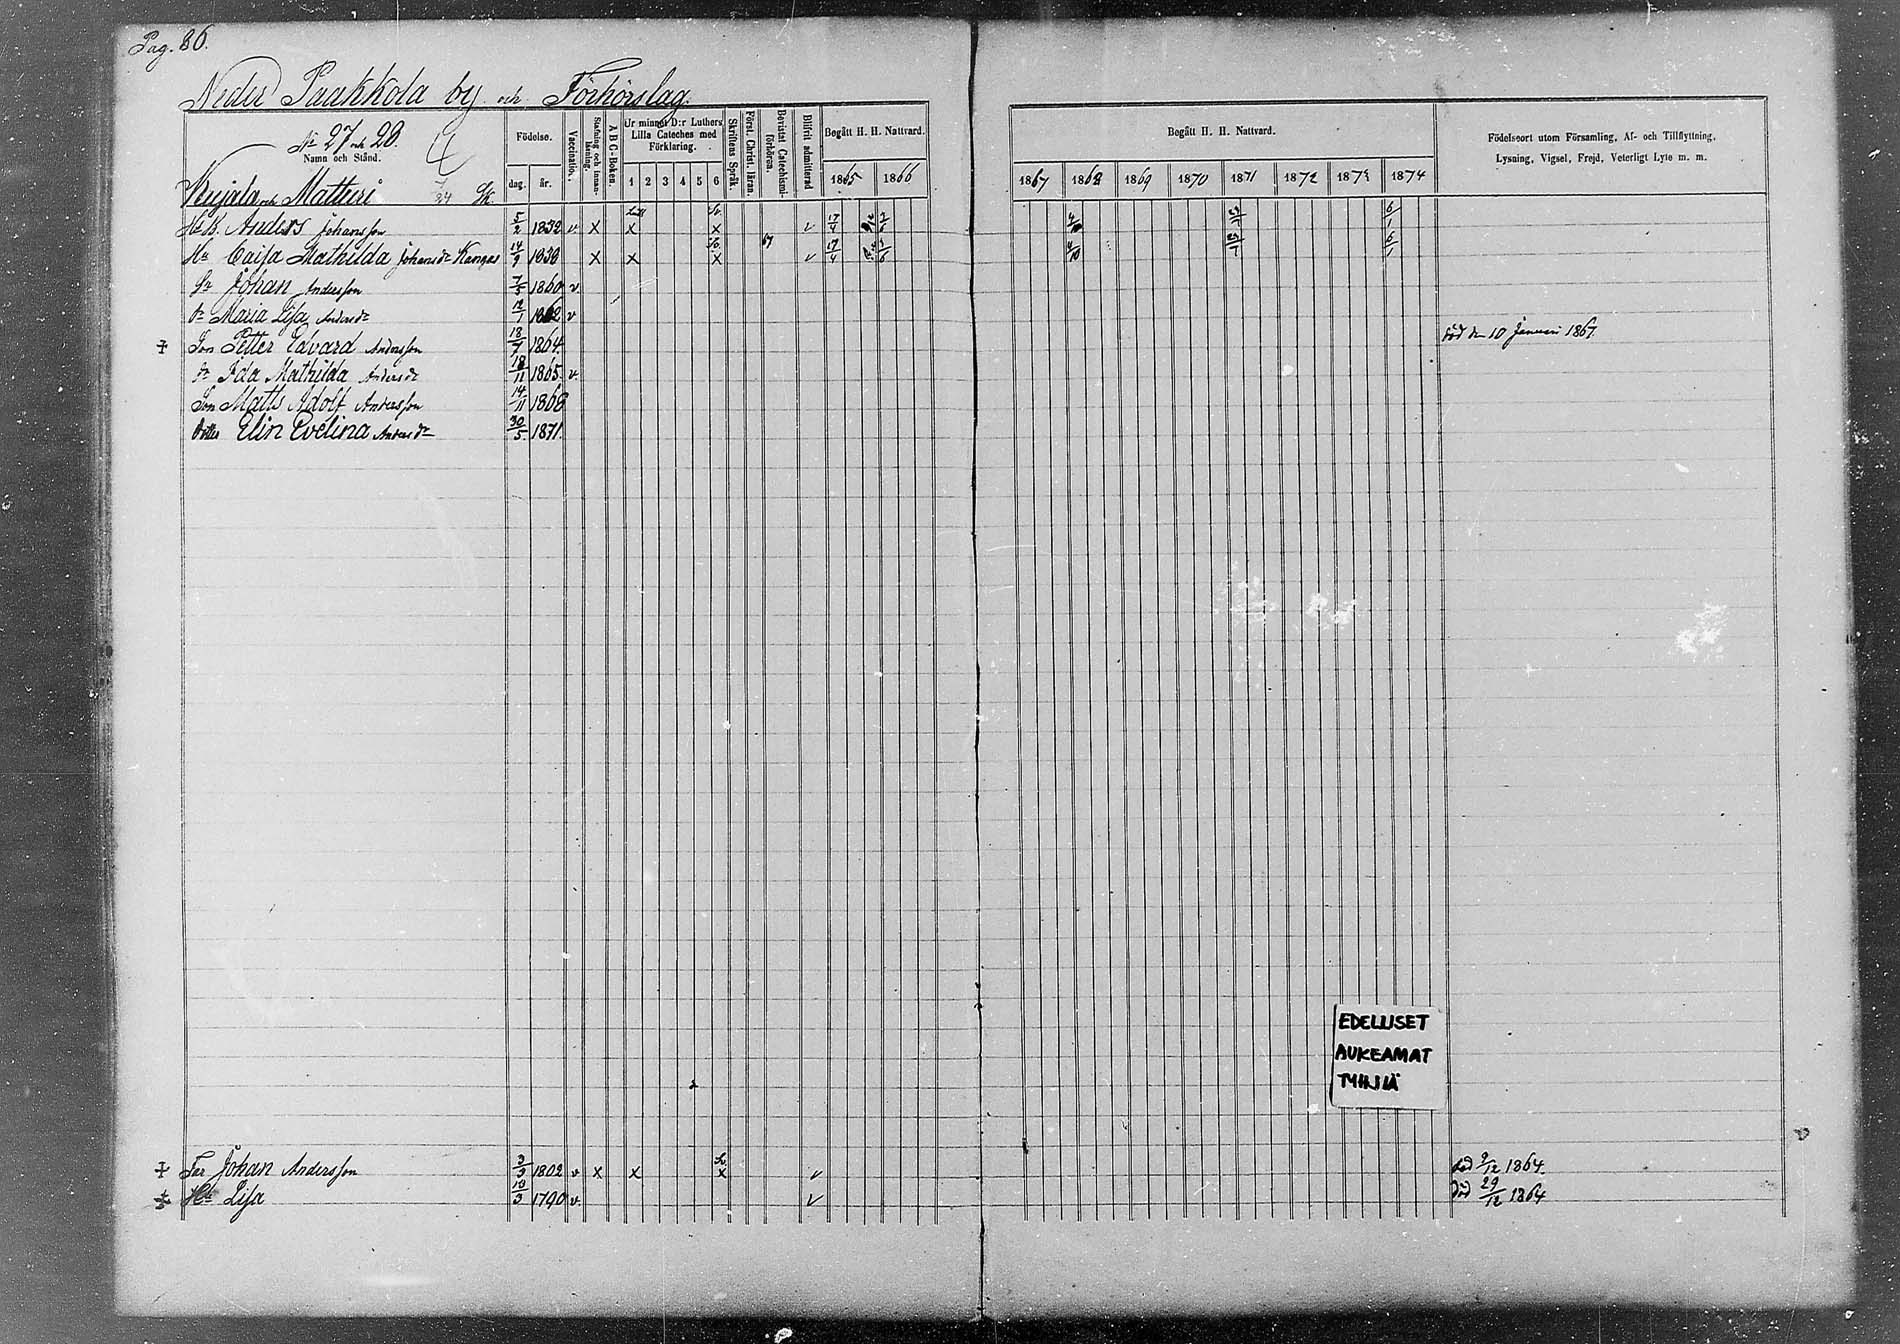 Pag. 86.
Neder Paakkola by och Förhörslag.
No 27 och 28.
Namn och Stånd.
Födelse.
dag. år.
Vaccination.
Stafning och innan-läsning.
A B C-Boken.
Ur minnet D:r Luthers Lilla Cateches med Förklaring.
1 2 3 4 5 6
Skriftens Språk.
Först. Christ. läran.
Bevistat Catechismi-förhören.
Blifvit admitterad
Begått H. H. Nattvard.
1865 1866
Begått H. H. Nattvard.
1867 1868 1869 1870 1871 1872 1873 1874
Födelseort utom Församling, Af- och Tillflyttning,
Lysning, Vigsel, Frejd, Veterligt Lyte m. m.
Kujala och Matturi
Anders Johansson 5/2 1832 v x x x v 17/4
Hu Caisa Mathilda Johansdr Kangas 14/9 1838 x x x 67 v 17/4
Sn Johan Andersson 7/5 1860 v.
Dr Maria Lisa Andersdr 12/1 1862 v
Son Petter Edvard Andersson 18/7 1864. död den 10 Januari 1867.
Dr Ida Mathilda Andersdr 18/11 1865. v.
Son Matts Adolf Andersson 14/11 1868
Dotter Elin Evelina Andersdr 30/5 1871.
EDELLISET
AUKEAMAT
TYHJIÄ
Far Johan Andersson 3/3 1802 v x x x v död 9/12 1864.
Hu Lisa 19/3 1790 v. v död 29/12 1864